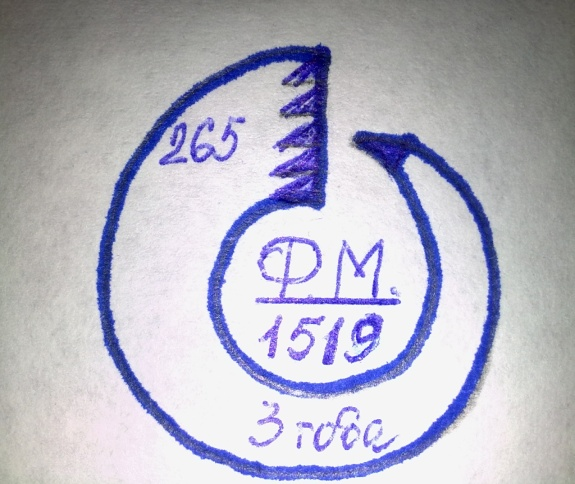 265
Ф.М.
1519
3 года